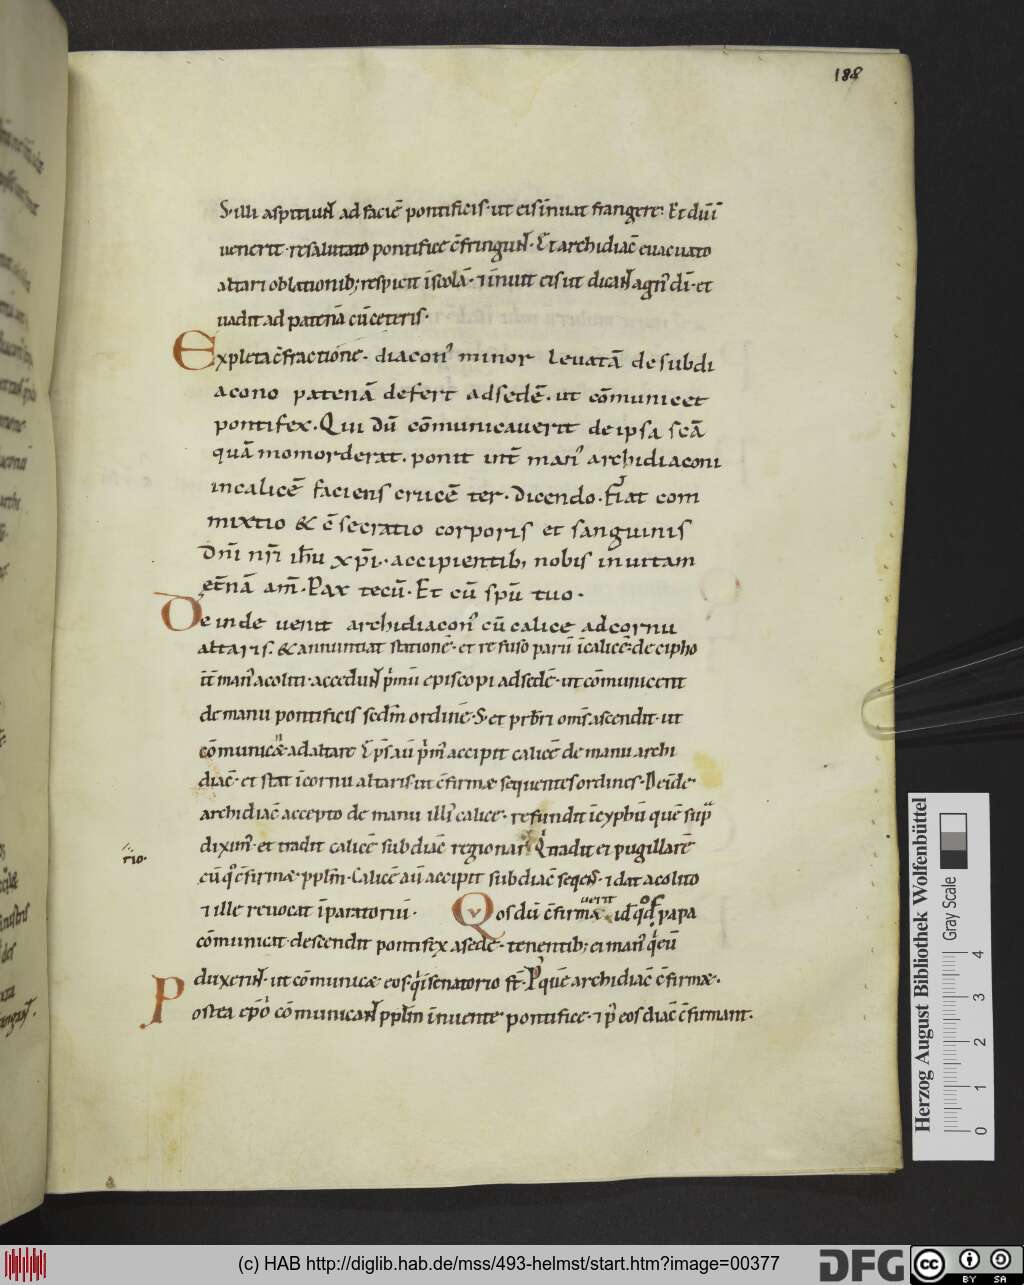 188
S. illi aspitiunt ad faciē pontificis. ut eis īnuat frangere. Et dūi
uenerit. resalutato pontifice c̄fringunt. Et archidiac̄ euacuato
altari oblationib; respicit īscolā. ⁊ īnuit eis ut dicant agn̄ dī. et
uadit ad patenā cū ceteris.
Expleta c̄fractione. diacon᾽ minor leuatā de subdi
acono patenā defert ad sedē. ut cōmunicet
pontifex. Qui dū cōmunicauerit de ipsa scā
quā momorderat. ponit int̄ man᾽ archidiaconi
in calicē faciens crucē ter. Dicendo. Fiat com
mixtio & c̄secratio corporis et sanguinis
Dn̄i nr̄i ih̄u xp̄i. accipientib, nobis inuitam
et̄nā am̄. Pax tecū. Et cū spū tuo.
Deinde uenit archidiacon᾽ cū calice ad cornu
altaris. & annuntiat stationē. et refuso parū īcalicē. de cipho
īt̄ man᾽ acoliti. accedunt p̄mū episcopi ad sedē. ut cōmunicent
de manu pontificis sedm̄ ordinē. S. et pr̄bri om̄s ascendit. ut
cōmunicæ ad altare Ep̄s aū p̄m᾽ accipit calicē de manu archi
diac̄. et stat īcornu altaris. ut c̄firmæ sequentes ordines. Deīde
archidiac̄ accepto de manu illi᾽ calice. refundit īcyphū quē sup̄
dixim᾽. et tradit calicē subdiac̄ regionari Q̇ tradit ei pugillarē
rio.
cū q᾽ c̄firmæ pplm̄. Calicē aū accipit subdiac̄ seqens. ⁊ dat acolito
⁊ ille reuocat īparatoriū. Quos dū c̄firmauerit id qd papa
cōmunicat. descendit pontifex a sede. tenentib; ei man᾽ q̇ eū
duxerint. ut cōmunicæ eos. q̇ īsenatorio st̄. P᾽ quē archidiac̄ c̄firmæ.
Postea ep̄i cōmunicant pplm̄ īnuente pontifice. ⁊ p᾽ eos diac̄ c̄firmant.
Herzog August Bibliothek Wolfenbüttel
Gray Scale
0 1 2 3 4
(c) HAB http://diglib.hab.de/mss/493-helmst/start.htm?image=00377
DFG
cc BY SA